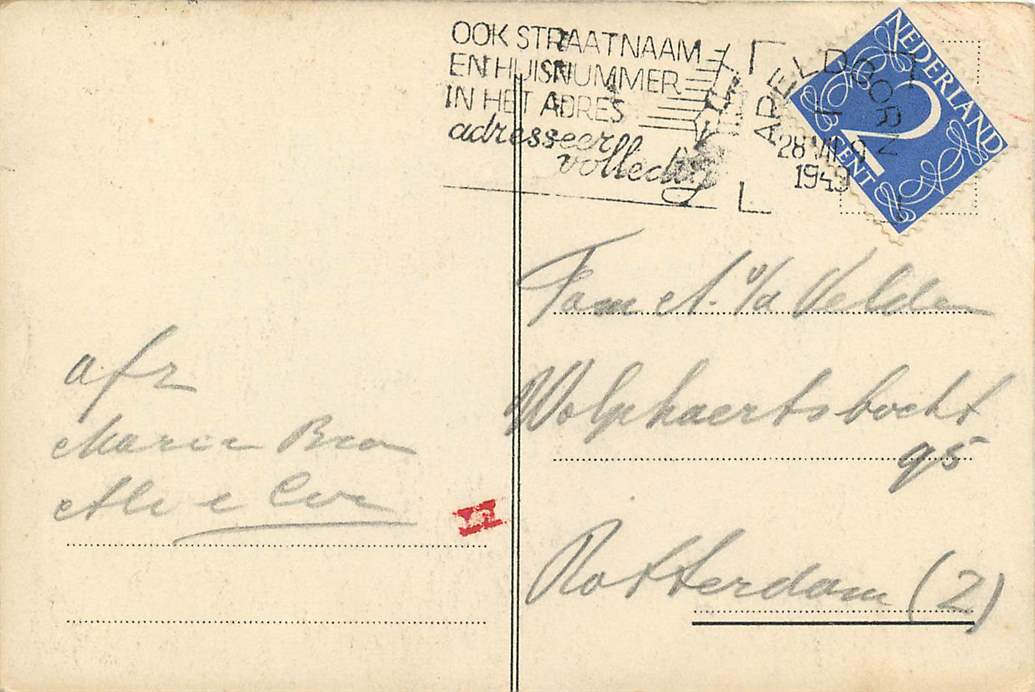 OOK STRAATNAAM
EN HUISNUMMER
IN HET ADRES
adresseer
volledig
APELDOORN
28 VII
1949
NEDERLAND
2
CENT
Fam A. v/d Velden
Wolphaertsbocht
95
Rotterdam (Z)
afz
Marie Bro